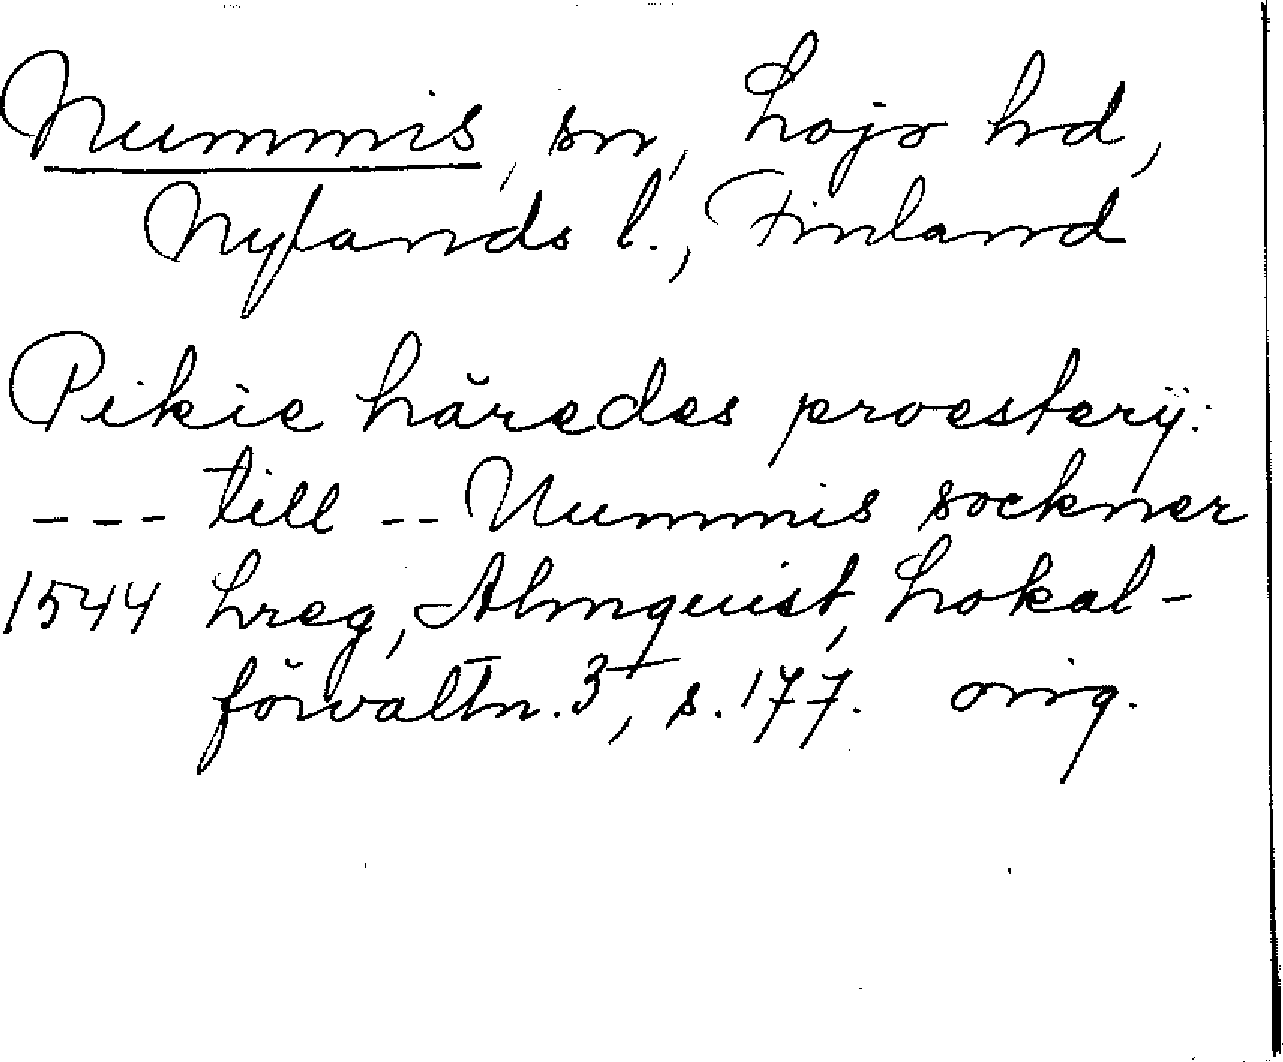 Nummis, sn, Lojo hd,
Nylands l., Finland
Pikie häredes proestery:
--- till -- Nummis sockner
1544 Lreg, Almquist, Lokal-
förvaltn. 3, s. 177. orig.